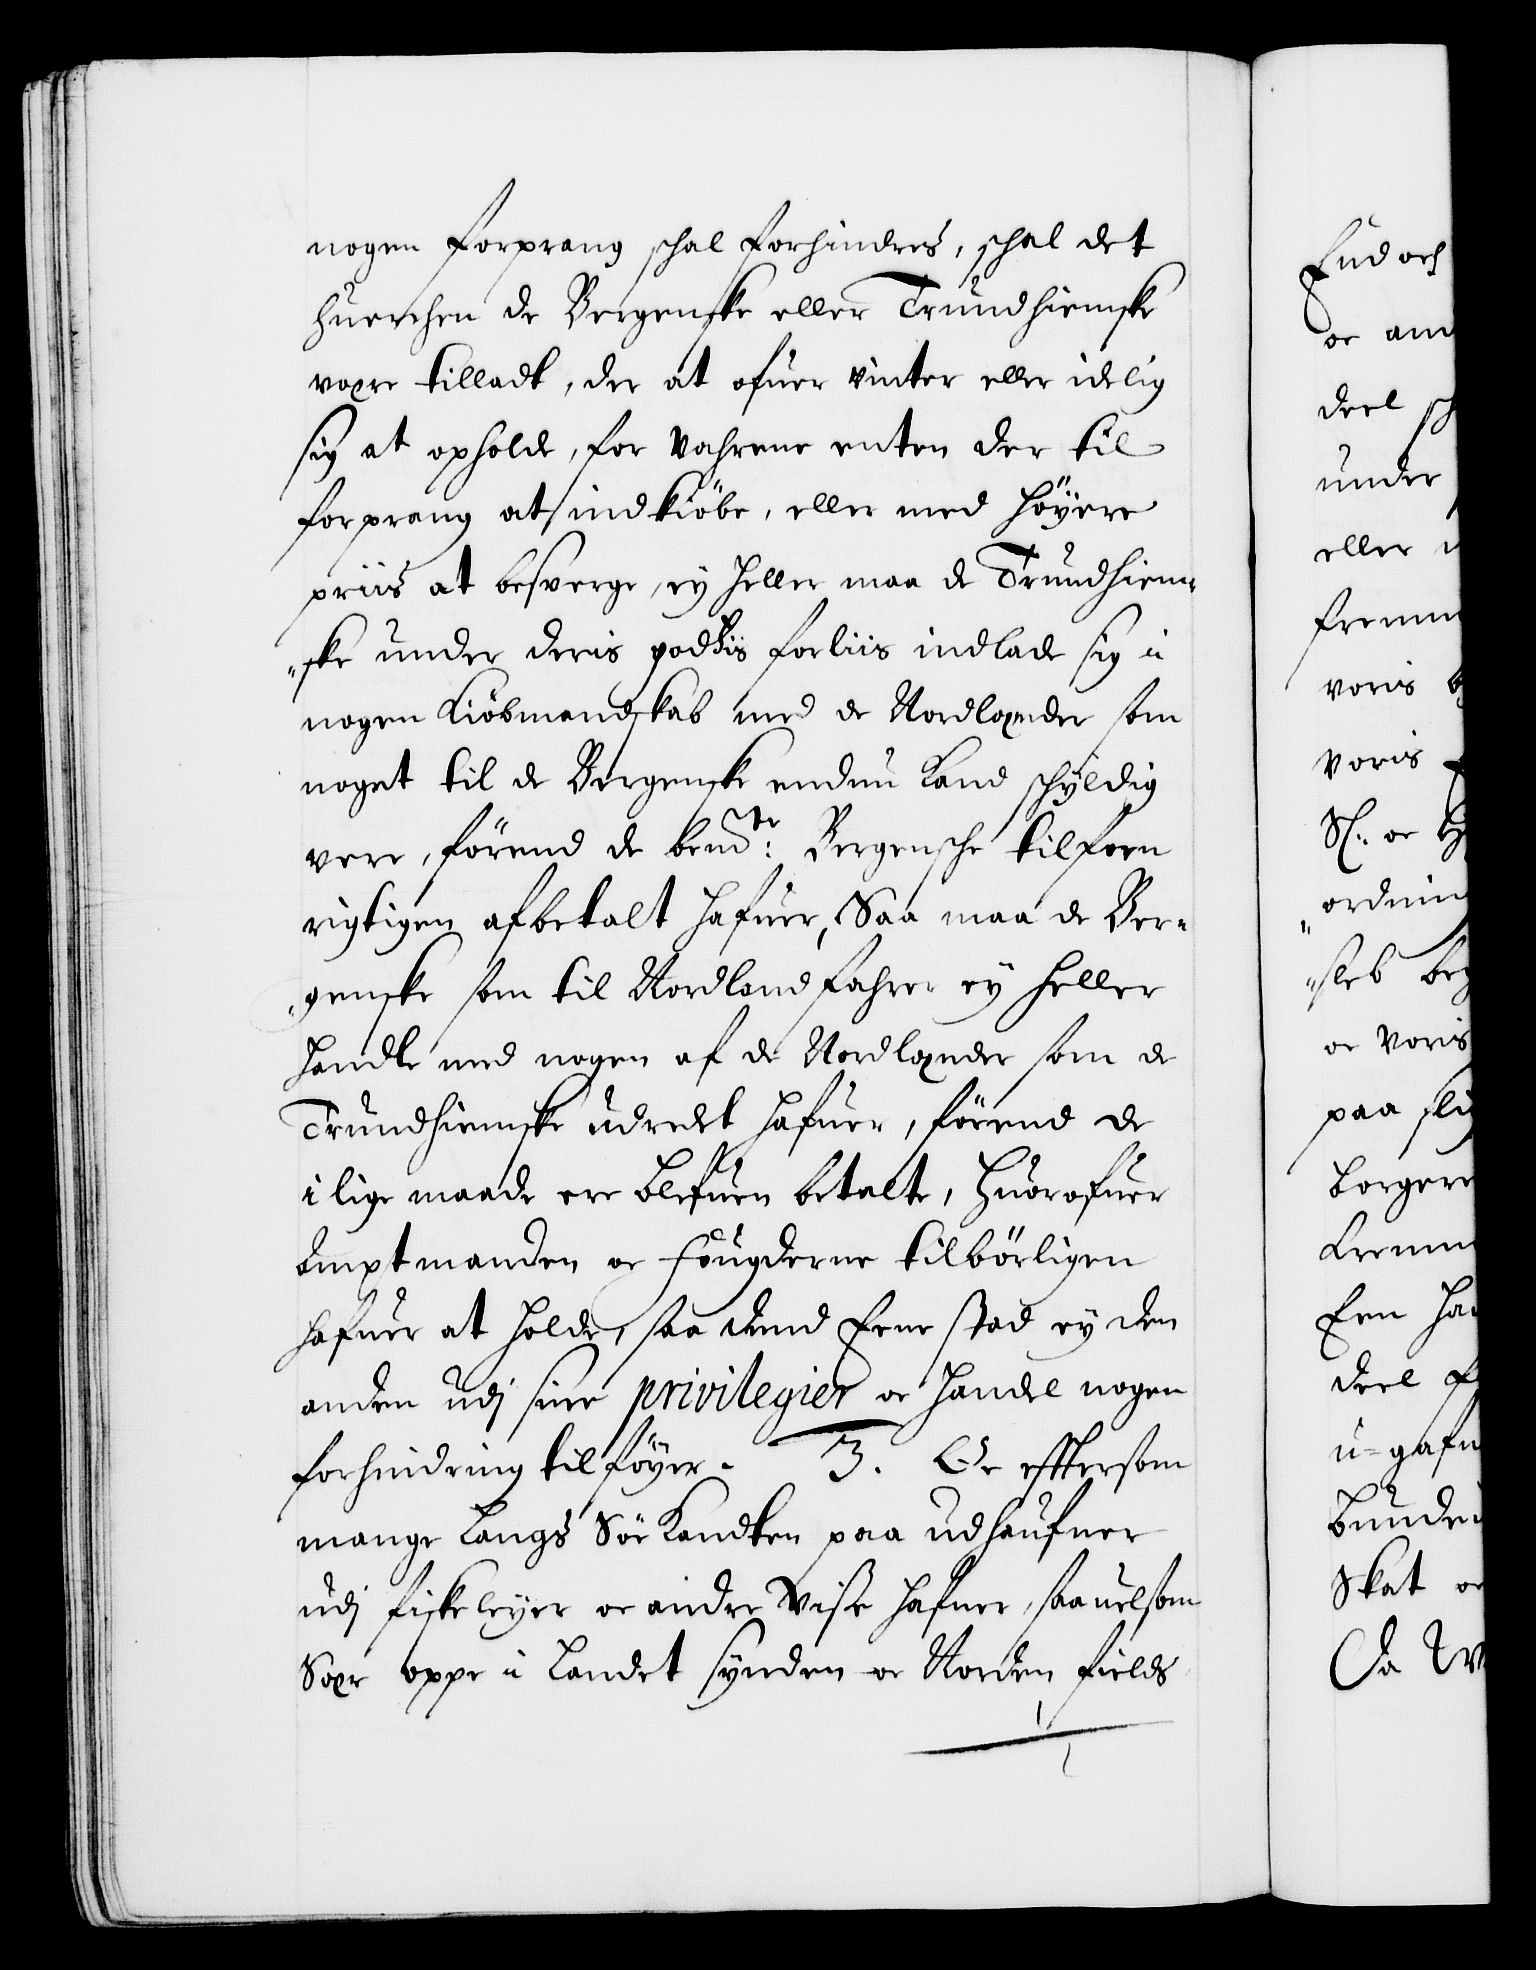 nogen forprang schal forhindres, schal det
huerchen de Bergenske eller Trundhiemske
være tilladt, der at ofuer vinter eller idelig
sig at opholde, for Vahrene enten der til
forprang at indkiöbe, eller med höyere
priis at besverge, ey heller maa de Trundhiem-
"ske under deris godtz forliis indlade sig i
nogen Kiöbmandskab med de Nordlænder som
noget til de Bergenske endnu kand schyldig
vere, förend de bemte: Bergensche tilforn
rigtigen afbetalt hafuer, Saa maa de Ber-
"genske som til Nordland fahrer ey heller
handle med nogen af de Nordlænder som de
Trundhiemske udredt hafuer, förend de
i lige maade ere blefuen betalte, huorofuer
Amptmanden oc fougderne tilbörligen
hafuer at holde, saa dend Eene stad ey den
anden udj sine privilegier oc handel nogen
forhindring tilföyer. 3. Oc efftersom
mange langs Söe Kandten paa udhaufner
udj fiskeleyer oc andre Visse hafner, saauelsom
Sær oppe i Landet synden oc Norden fields
End och
oc an
deel sch
under
eller
fremm
voris
Voris
Sl. oc H
ordnin
"sleb beg
oc Voris
paa sli
borgere
Kremm
Een ha
deel f
u=gafn
bunden
Skat oc
Da W